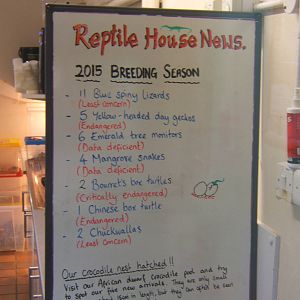 Reptile House News.
2015 Breeding Season
- 11 Blue spiny lizards
(Least concern)
- 5 Yellow-headed day geckos
(Endangered)
- 6 Emerald tree monitors
(Data deficient)
- 4 Mangrove snakes
(Data deficient)
- 2 Bourret's box turtles
(Critically endangered)
- 1 Chinese box turtle
(Endangered)
- 2 Chuckwallas
(Least concern)
Our crocodile nest hatched!!
Visit our African dwarf crocodile pool and try
to spot our five new arrivals. They are only small
in length, but they can often be seen